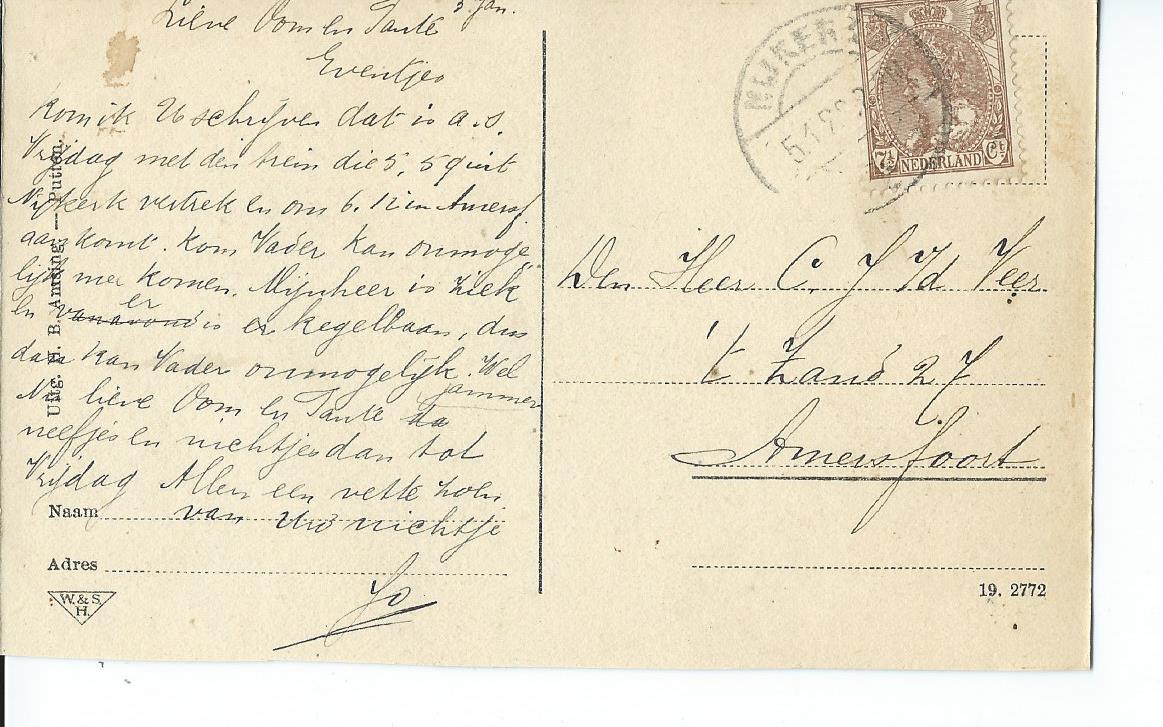 5 Jan.
Lieve Oom en Tante
Evertjes
Kom ik U schrijven dat is a.s.
Vrijdag met den trein die 5,59 uit
Nijkerk vertrek en om 6.12 in Amersf.
aankomt. Kom Vader kan onmoge
lijk mee komen. Mijnheer is ziek
er
en vanavond is er kegelbaan, dus
dan kan Vader onmogelijk. Wel
jammer
Nu lieve Oom en Tante
neefjes en nichtjes dan tot
Vrijdag Allen een vette zoen
van Uw nichtje
Jo
Naam
Adres
W. & S.
H.
Uitg. H. B. Amsing. — Putten.
NIJKERK
5.1.92
7½ NEDERLAND Ct
Den Heer C. J Vd Veer
't Zand 27
Amersfoort
19. 2772